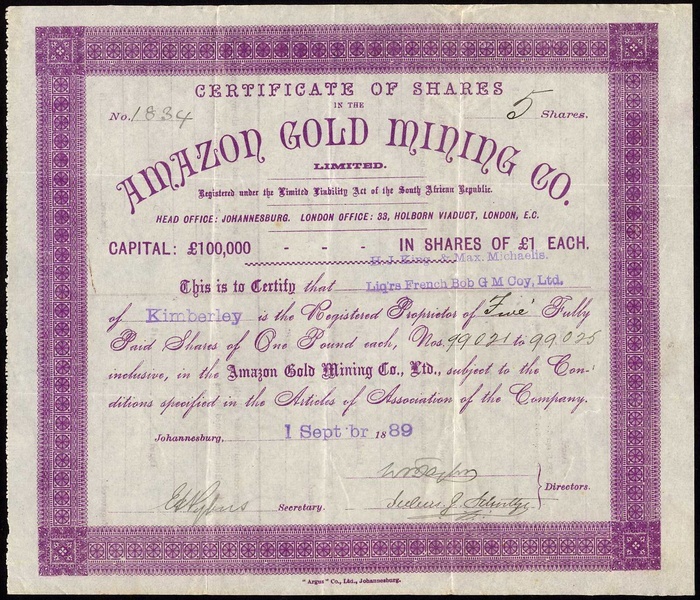 CERTIFICATE OF SHARES
No. 1834
IN THE
5 Shares.
AMAZON GOLD MINING CO.
LIMITED.
Registered under the Limited Liability Act of the South African Republic.
HEAD OFFICE: JOHANNESBURG. LONDON OFFICE: 33, HOLBORN VIADUCT, LONDON, E.C.
CAPITAL: £100,000 - - - IN SHARES OF £1 EACH.
H.J. King & Max. Michaelis.
This is to Certify that Liq'rs French Bob G M Coy, Ltd.
of Kimberley is the Registered Proprietor of Five Fully
Paid Shares of One Pound each, Nos. 99021 to 99025
inclusive, in the Amazon Gold Mining Co., Ltd., subject to the Con-
ditions specified in the Articles of Association of the Company.
Johannesburg, 1 Sept'br 1889
Directors.
Secretary.
"Argus" Co., Ltd., Johannesburg.